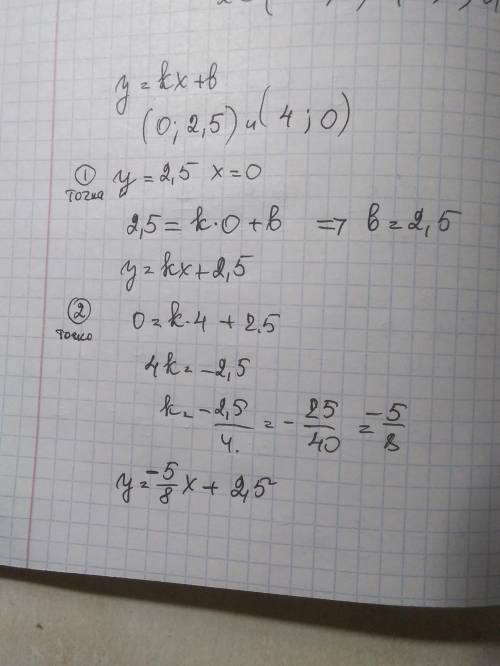 y = kx + в
(0; 2,5) и (4; 0)
① точка y = 2,5 x = 0
2,5 = k·0 + в => в = 2,5
y = kx + 2,5
② точка 0 = k·4 + 2.5
4k = -2,5
k = -2,5/4. = -25/40 = -5/8
y = -5/8 x + 2,5